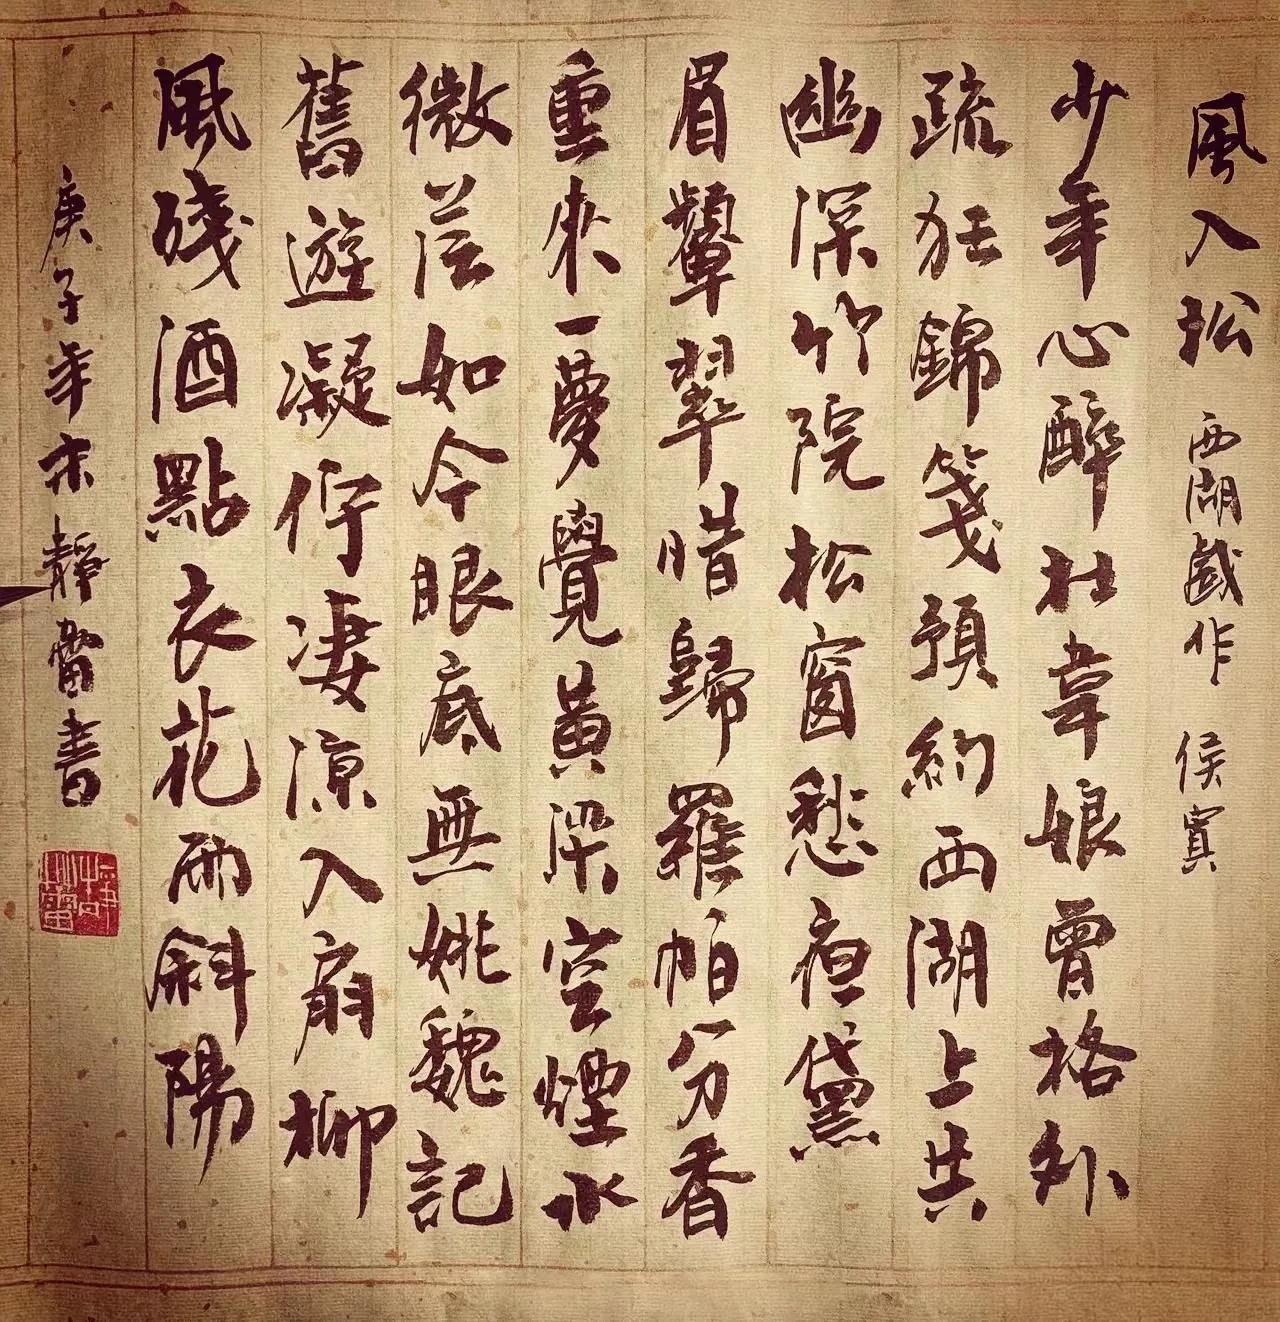 風入松 西湖戲作 侯寘
少年心醉杜韋娘曾格外
疏狂錦箋預約西湖上共
幽深竹院松窗愁夜黛
眉顰翠惜歸羅帕分香
重來一夢覺黃梁空煙水
微茫如今眼底無姚魏記
舊遊凝佇淒涼入扇柳
風殘酒點衣花雨斜陽
庚子年宋靜雷書